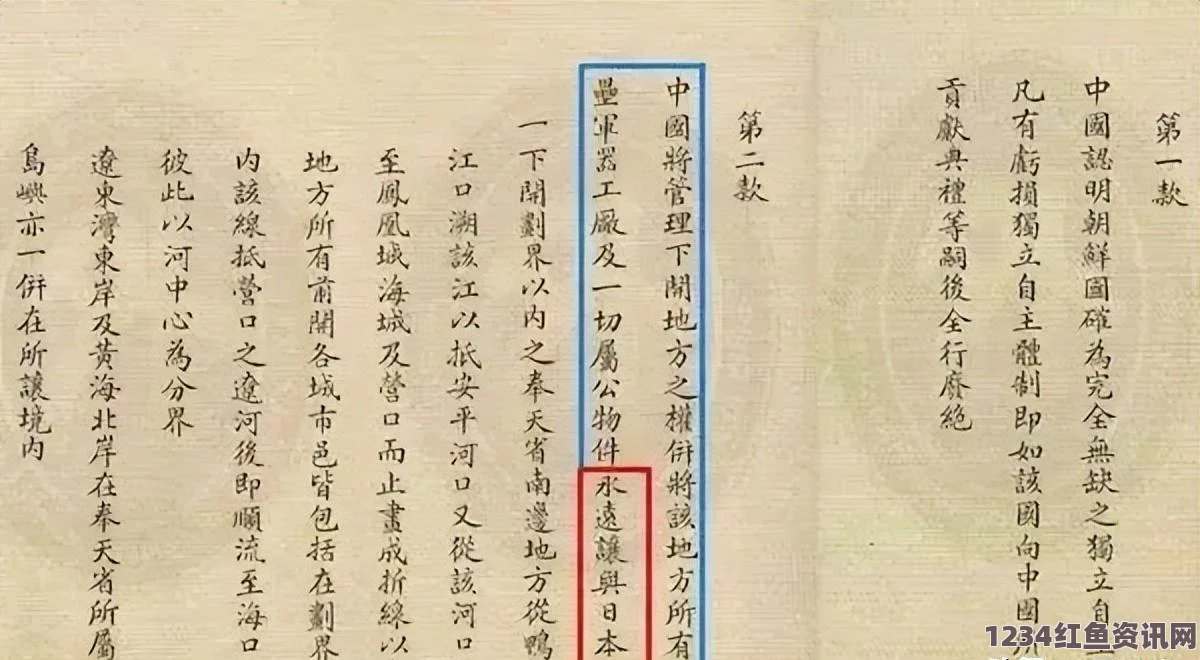 第一款
中國認明朝鮮國確為完全無缺之獨立自
凡有虧損獨立自主體制即如該國向中國
貢獻典禮等嗣後全行廢絕
第二款
中國將管理下開地方之權併將該地方所有
壘軍器工廠及一切屬公物件永遠讓與日本
一下開劃界以內之奉天省南邊地方從鴨
江口溯該江以抵安平河口又從該河口
至鳳凰城海城及營口而止畫成折線以
地方所有前開各城市邑皆包括在劃界
內該線抵營口之遼河後即順流至海口
彼此以河中心為分界
遼東灣東岸及黃海北岸在奉天省所屬
島嶼亦一併在所讓境內
1234红鱼资讯网